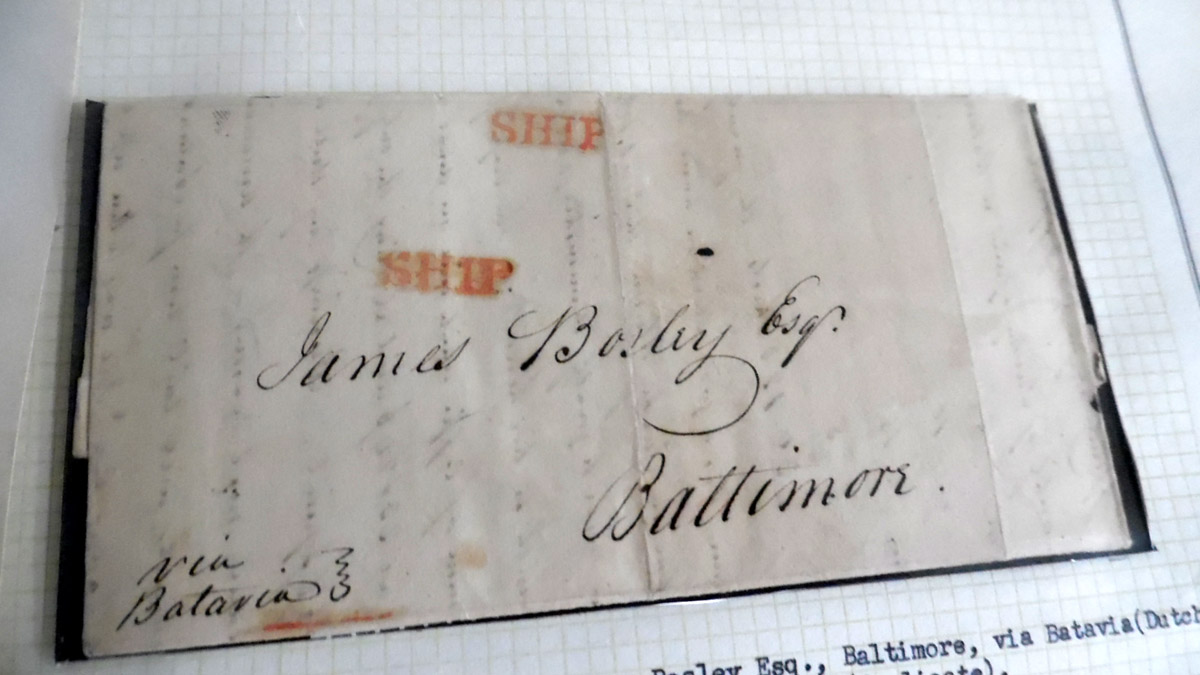 SHIP
SHIP
James Bosley Esqr.
Baltimore.
via
Batavia
Bosley Esq., Baltimore, via Batavia(Dutch